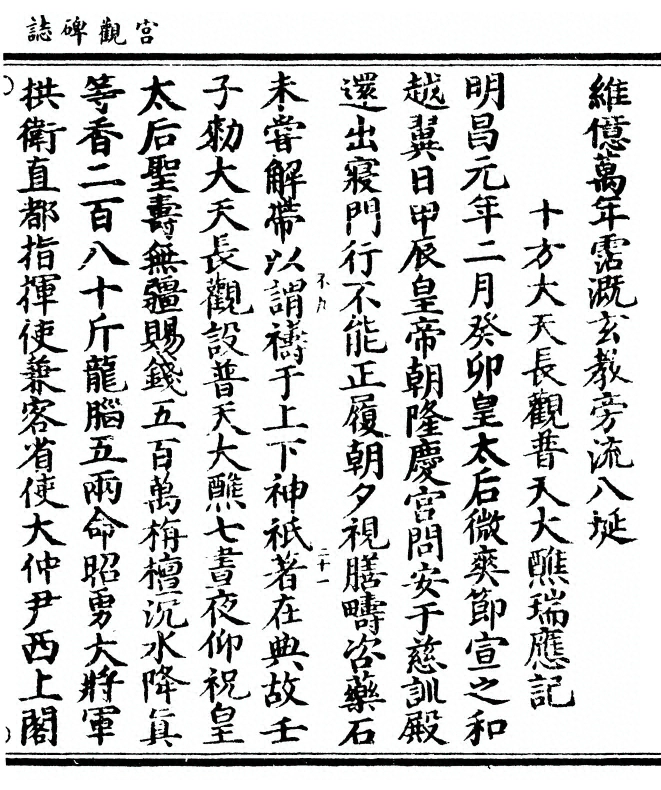 宮觀碑誌
維億萬年霑溉玄教旁流八埏
十方大天長觀普天大醮瑞應記
明昌元年二月癸卯皇太后微爽節宣之和
越翼日甲辰皇帝朝隆慶宮問安于慈訓殿
還出寢門行不能正履朝夕視膳疇咨藥石
未嘗解帶以謂禱于上下神祇著在典故壬
不九
二十一
子勑大天長觀設普天大醮七晝夜仰祝皇
太后聖壽無疆賜錢五百萬栴檀沉水降真
等香二百八十斤龍腦五兩命昭勇大將軍
拱衛直都指揮使兼客省使大仲尹西上閣